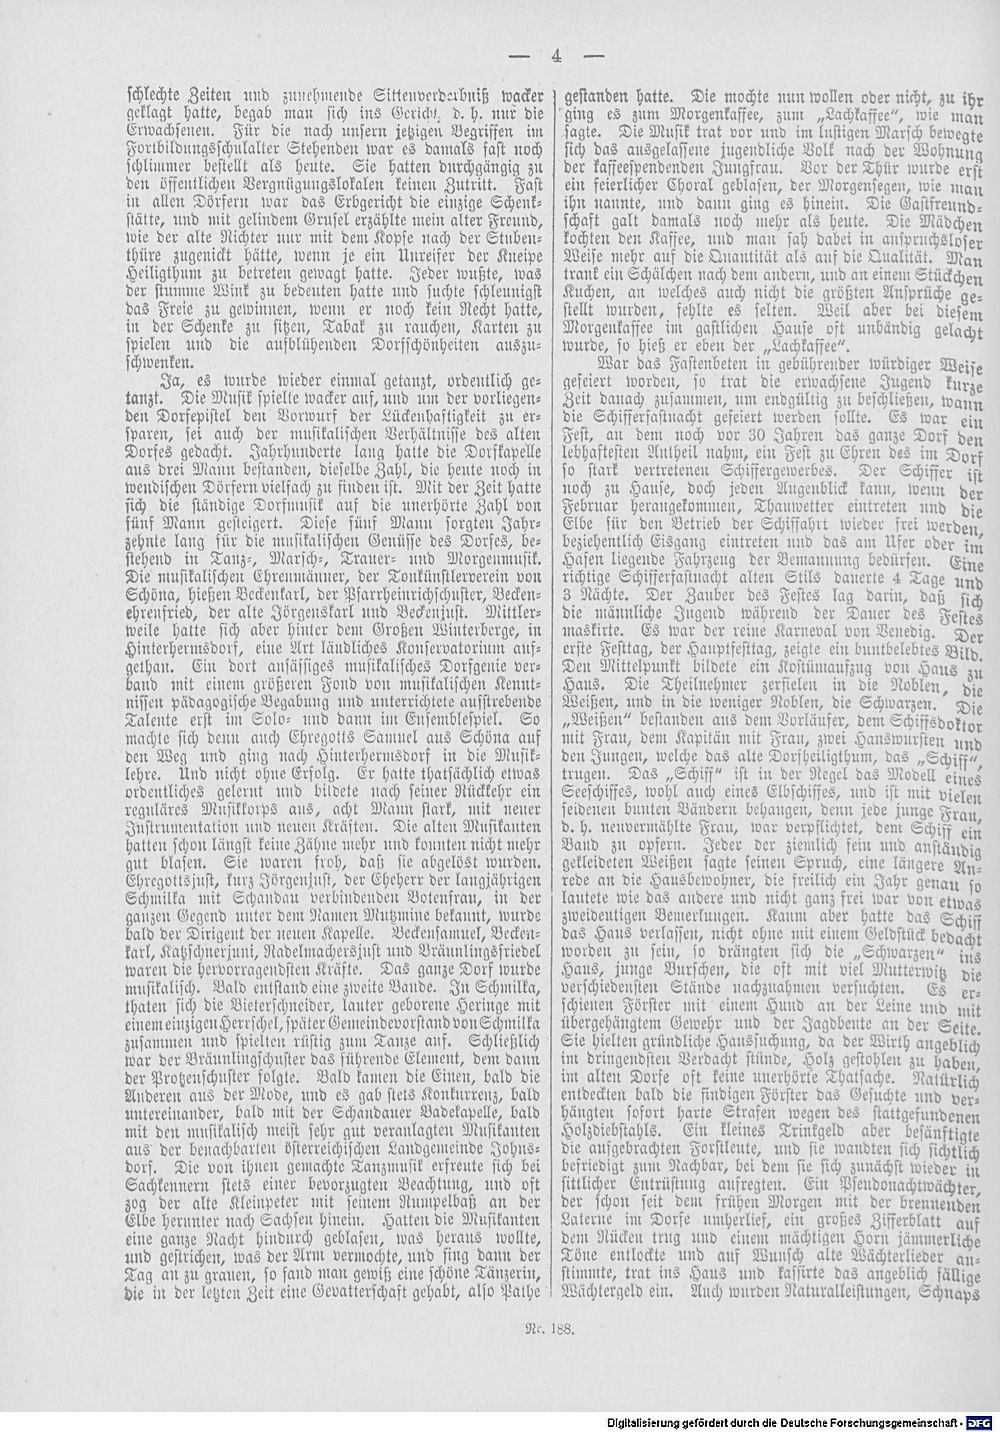 — 4 —
schlechte Zeiten und zunehmende Sittenverderbniß wacker
geklagt hatte, begab man sich ins Gericht, d. h. nur die
Erwachsenen. Für die nach unsern jetzigen Begriffen im
Fortbildungsschulalter Stehenden war es damals fast noch
schlimmer bestellt als heute. Sie hatten durchgängig zu
den öffentlichen Vergnügungslokalen keinen Zutritt. Fast
in allen Dörfern war das Erbgericht die einzige Schenk-
stätte, und mit gelindem Grusel erzählte mein alter Freund,
wie der alte Richter nur mit dem Kopfe nach der Stuben-
thüre zugenickt hätte, wenn je ein Unreifer der Kneipe
Heiligthum zu betreten gewagt hatte. Jeder wußte, was
der stumme Wink zu bedeuten hatte und suchte schleunigst
das Freie zu gewinnen, wenn er noch kein Recht hatte,
in der Schenke zu sitzen, Tabak zu rauchen, Karten zu
spielen und die aufblühenden Dorfschönheiten auszu-
schwenken.
Ja, es wurde wieder einmal getanzt, ordentlich ge-
tanzt. Die Musik spielte wacker auf, und um der vorliegen-
den Dorfepistel den Vorwurf der Lückenhaftigkeit zu er-
sparen, sei auch der musikalischen Verhältnisse des alten
Dorfes gedacht. Jahrhunderte lang hatte die Dorfkapelle
aus drei Mann bestanden, dieselbe Zahl, die heute noch in
wendischen Dörfern vielfach zu finden ist. Mit der Zeit hatte
sich die ständige Dorfmusik auf die unerhörte Zahl von
fünf Mann gesteigert. Diese fünf Mann sorgten Jahr-
zehnte lang für die musikalischen Genüsse des Dorfes, be-
stehend in Tanz-, Marsch-, Trauer- und Morgenmusik.
Die musikalischen Ehrenmänner, der Tonkünstlerverein von
Schöna, hießen Beckenkarl, der Pfarrheinrichschuster, Becken-
ehrenfried, der alte Jörgenskarl und Beckenjust. Mittler-
weile hatte sich aber hinter dem Großen Winterberge, in
Hinterhermsdorf, eine Art ländliches Konservatorium auf-
gethan. Ein dort ansässiges musikalisches Dorfgenie ver-
band mit einem größeren Fond von musikalischen Kennt-
nissen pädagogische Begabung und unterrichtete aufstrebende
Talente erst im Solo- und dann im Ensemblespiel. So
machte sich denn auch Ehregotts Samuel aus Schöna auf
den Weg und ging nach Hinterhermsdorf in die Musik-
lehre. Und nicht ohne Erfolg. Er hatte thatsächlich etwas
ordentliches gelernt und bildete nach seiner Rückkehr ein
reguläres Musikkorps aus, acht Mann stark, mit neuer
Instrumentation und neuen Kräften. Die alten Musikanten
hatten schon längst keine Zähne mehr und konnten nicht mehr
gut blasen. Sie waren froh, daß sie abgelöst wurden.
Ehregottsjust, kurz Jörgenjust, der Eheherr der langjährigen
Schmilka mit Schandau verbindenden Botenfrau, in der
ganzen Gegend unter dem Namen Mutzmine bekannt, wurde
bald der Dirigent der neuen Kapelle. Beckensamuel, Becken-
karl, Katzschnerjuni, Nadelmachersjust und Bräunlingsfriedel
waren die hervorragendsten Kräfte. Das ganze Dorf wurde
musikalisch. Bald entstand eine zweite Bande. In Schmilka,
thaten sich die Vieterschneider, lauter geborene Heringe mit
einem einzigen Herrschel, später Gemeindevorstand von Schmilka
zusammen und spielten rüstig zum Tanze auf. Schließlich
war der Bräunlingschuster das führende Element, dem dann
der Protzenschuster folgte. Bald kamen die Einen, bald die
Anderen aus der Mode, und es gab stets Konkurrenz, bald
untereinander, bald mit der Schandauer Badekapelle, bald
mit den musikalisch meist sehr gut veranlagten Musikanten
aus der benachbarten österreichischen Landgemeinde Johns-
dorf. Die von ihnen gemachte Tanzmusik erfreute sich bei
Sachkennern stets einer bevorzugten Beachtung, und oft
zog der alte Kleinpeter mit seinem Rumpelbaß an der
Elbe herunter nach Sachsen hinein. Hatten die Musikanten
eine ganze Nacht hindurch geblasen, was heraus wollte,
und gestrichen, was der Arm vermochte, und fing dann der
Tag an zu grauen, so fand man gewiß eine schöne Tänzerin,
die in der letzten Zeit eine Gevatterschaft gehabt, also Pathe
gestanden hatte. Die mochte nun wollen oder nicht, zu ihr
ging es zum Morgenkaffee, zum „Lachkaffee“, wie man
sagte. Die Musik trat vor und im lustigen Marsch bewegte
sich das ausgelassene jugendliche Volk nach der Wohnung
der kaffeespendenden Jungfrau. Vor der Thür wurde erst
ein feierlicher Choral geblasen, der Morgensegen, wie man
ihn nannte, und dann ging es hinein. Die Gastfreund-
schaft galt damals noch mehr als heute. Die Mädchen
kochten den Kaffee, und man sah dabei in anspruchsloser
Weise mehr auf die Quantität als auf die Qualität. Man
trank ein Schälchen nach dem andern, und an einem Stückchen
Kuchen, an welches auch nicht die größten Ansprüche ge-
stellt wurden, fehlte es selten. Weil aber bei diesem
Morgenkaffee im gastlichen Hause oft unbändig gelacht
wurde, so hieß er eben der „Lachkaffee“.
War das Fastenbeten in gebührender würdiger Weise
gefeiert worden, so trat die erwachsene Jugend kurze
Zeit danach zusammen, um endgültig zu beschließen, wann
die Schifferfastnacht gefeiert werden sollte. Es war ein
Fest, an dem noch vor 30 Jahren das ganze Dorf den
lebhaftesten Antheil nahm, ein Fest zu Ehren des im Dorf
so stark vertretenen Schiffergewerbes. Der Schiffer ist
noch zu Hause, doch jeden Augenblick kann, wenn der
Februar herangekommen, Thauwetter eintreten und die
Elbe für den Betrieb der Schiffahrt wieder frei werden,
beziehentlich Eisgang eintreten und das am Ufer oder im
Hafen liegende Fahrzeug der Bemannung bedürfen. Eine
richtige Schifferfastnacht alten Stils dauerte 4 Tage und
3 Nächte. Der Zauber des Festes lag darin, daß sich
die männliche Jugend während der Dauer des Festes
maskirte. Es war der reine Karneval von Venedig. Der
erste Festtag, der Hauptfesttag, zeigte ein buntbelebtes Bild.
Den Mittelpunkt bildete ein Kostümaufzug von Haus zu
Haus. Die Theilnehmer zerfielen in die Noblen, die
Weißen, und in die weniger Noblen, die Schwarzen. Die
„Weißen“ bestanden aus dem Vorläufer, dem Schiffsdoktor
mit Frau, dem Kapitän mit Frau, zwei Hanswursten und
den Jungen, welche das alte Dorfheiligthum, das „Schiff“,
trugen. Das „Schiff“ ist in der Regel das Modell eines
Seeschiffes, wohl auch eines Elbschiffes, und ist mit vielen
seidenen bunten Bändern behangen, denn jede junge Frau,
d. h. neuvermählte Frau, war verpflichtet, dem Schiff ein
Band zu opfern. Jeder der ziemlich fein und anständig
gekleideten Weißen sagte seinen Spruch, eine längere An-
rede an die Hausbewohner, die freilich ein Jahr genau so
lautete wie das andere und nicht ganz frei war von etwas
zweideutigen Bemerkungen. Kaum aber hatte das Schiff
das Haus verlassen, nicht ohne mit einem Geldstück bedacht
worden zu sein, so drängten sich die „Schwarzen“ ins
Haus, junge Burschen, die oft mit viel Mutterwitz die
verschiedensten Stände nachzuahmen versuchten. Es er-
schienen Förster mit einem Hund an der Leine und mit
übergehängtem Gewehr und der Jagdbeute an der Seite.
Sie hielten gründliche Haussuchung, da der Wirth angeblich
im dringendsten Verdacht stünde, Holz gestohlen zu haben,
im alten Dorfe oft keine unerhörte Thatsache. Natürlich
entdeckten bald die findigen Förster das Gesuchte und ver-
hängten sofort harte Strafen wegen des stattgefundenen
Holzdiebstahls. Ein kleines Trinkgeld aber besänftigte
die aufgebrachten Forstleute, und sie wandten sich sichtlich
befriedigt zum Nachbar, bei dem sie sich zunächst wieder in
sittlicher Entrüstung aufregten. Ein Pseudonachtwächter,
der schon seit dem frühen Morgen mit der brennenden
Laterne im Dorfe umherlief, ein großes Zifferblatt auf
dem Rücken trug und einem mächtigen Horn jämmerliche
Töne entlockte und auf Wunsch alte Wächterlieder an-
stimmte, trat ins Haus und kassirte das angeblich fällige
Wächtergeld ein. Auch wurden Naturalleistungen, Schnaps
Nr. 188.
Digitalisierung gefördert durch die Deutsche Forschungsgemeinschaft - DFG